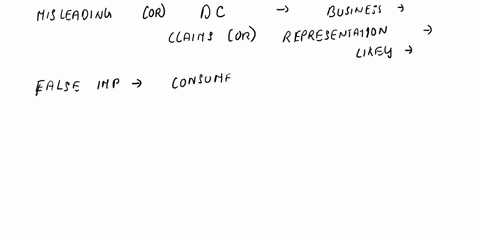 MISLEADING (OR) DC → BUSINESS →
CLAIMS (OR) REPRESENTATION →
LIKELY →
FALSE IMP → CONSUME